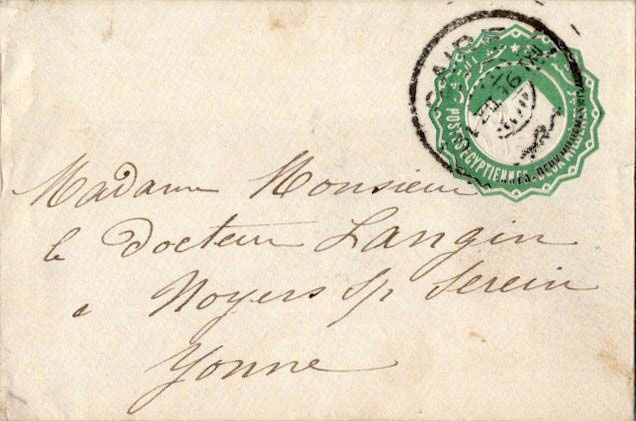 POSTES EGYPTIENNES
Madame Monsieur
le Docteur Langin
a Noyers s/ Serein
Yonne